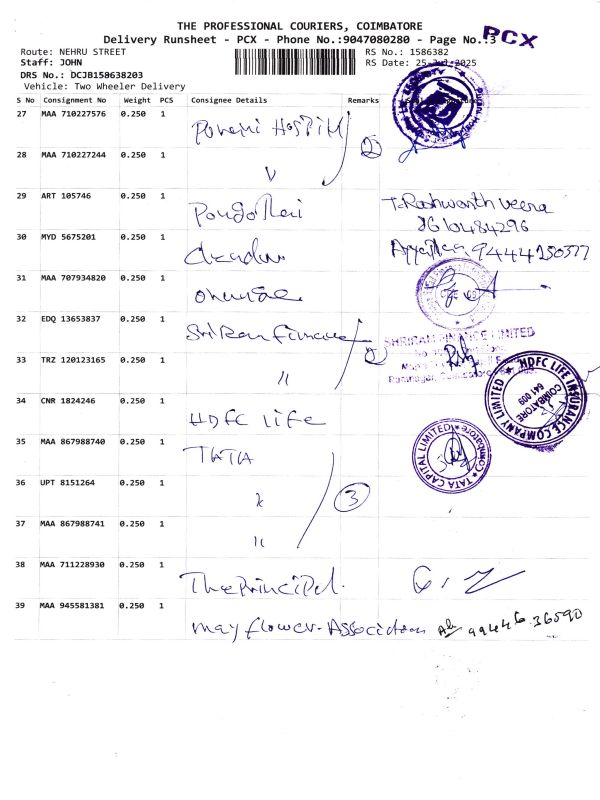 THE PROFESSIONAL COURIERS, COIMBATORE
Delivery Runsheet - PCX - Phone No.:9047080280 - Page No.:3
PCX
Route: NEHRU STREET
RS No.: 1586382
Staff: JOHN
RS Date: 2025
DRS No.: DCJB158638203
Vehicle: Two Wheeler Delivery
S No Consignment No Weight PCS Consignee Details Remarks
27 MAA 710227576 0.250 1 Hospital
2
28 MAA 710227244 0.250 1
29 ART 105746 0.250 1
8610484296
30 MYD 5675201 0.250 1
31 MAA 707934820 0.250 1
32 EDQ 13653837 0.250 1 Sriram Finance
2
SHRIRAM FINANCE LIMITED
33 TRZ 120123165 0.250 1 "
34 CNR 1824246 0.250 1 HDFC Life
HDFC LIFE INSURANCE COMPANY LIMITED
COIMBATORE
641 009
35 MAA 867988740 0.250 1 TATA
TATA CAPITAL LIMITED
Coimbatore
36 UPT 8151264 0.250 1
3
37 MAA 867988741 0.250 1 "
38 MAA 711228930 0.250 1 The Principal.
39 MAA 945581381 0.250 1 May flower Association 99446 36590